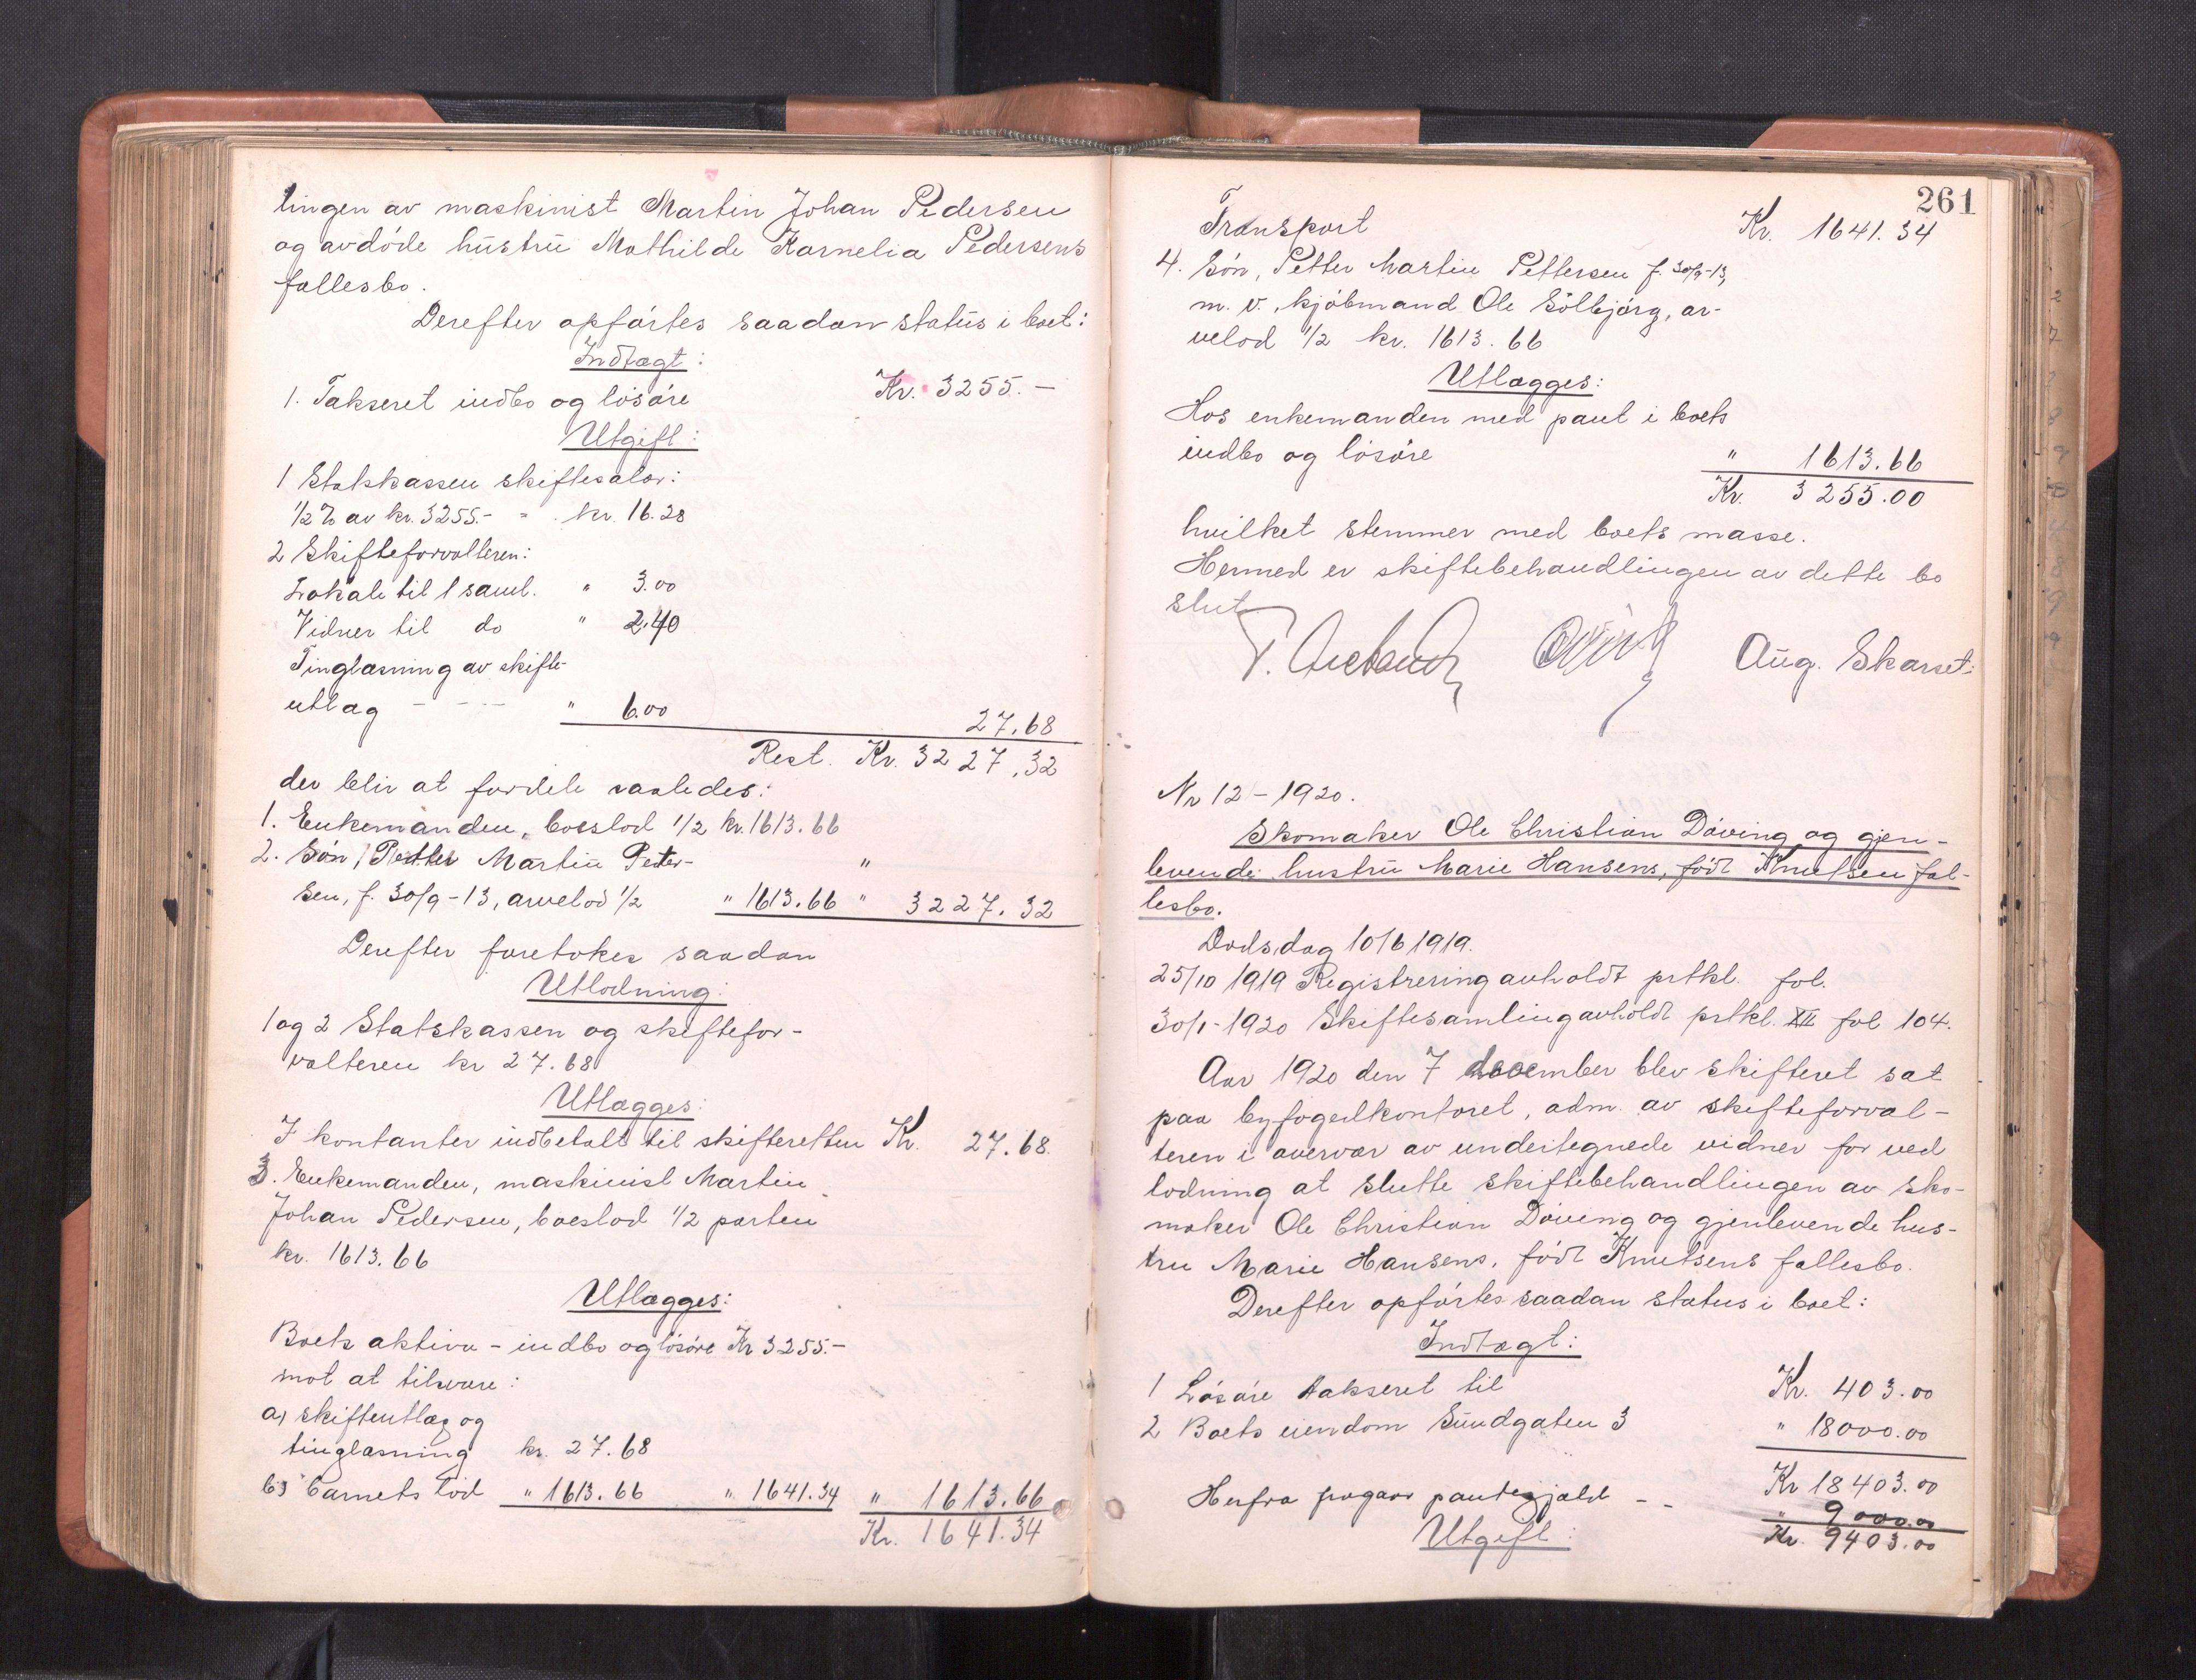 lingen av maskinist Martin Johan Pedersen
og avdøde hustru Mathilde Karnelia Pedersens
fællesbo.
Derefter opførtes saadan status i boet:
Indtægt:
1. Takseret indbo og løsøre Kr. 3255.-
Utgift:
1 Statskassen skiftesalær:
1/2 % av kr. 3255.- = kr. 16.28
2 Skifteforvalteren:
Lokale til 1 saml. " 3.00
Vidner til do " 2.40
Tinglæsning av skifte-
utlæg - - - - " 6.00 27.68
Rest. Kr. 3227.32
der blir at fordele saaledes:
1. Enkemanden, boeslod 1/2 kr. 1613.66
2. Søn, Petter Martin Peter- "
sen, f. 30/9-13, arvelod 1/2 " 1613.66 " 3227.32
Derefter foretokes saadan
Utlodning:
1 og 2 Statskassen og skiftefor-
valteren kr 27.68
Utlægges:
I kontanter indbetalt til skifteretten Kr. 27.68.
3. Enkemanden, maskinist Martin
Johan Pedersen, boeslod 1/2 parten
kr. 1613.66
Utlægges:
Boets aktiva - indbo og løsøre Kr 3255.-
mot at tilsvare:
a) skifteutlæg og
tinglæsning kr. 27.68
b) barnets lod " 1613.66 " 1641.34 " 1613.66
Kr. 1641.34
261
Transport Kr. 1641.34
4. Søn, Petter Martin Pettersen f. 30/9-13,
m. v. kjøbmand Ole Sølbjørg, ar-
velod 1/2 kr. 1613.66
Utlægges:
Hos enkemanden med pant i boets
indbo og løsøre " 1613.66
Kr. 3255.00
hvilket stemmer med boets masse.
Hermed er skiftebehandlingen av dette bo
slut
Aug. Skarset.
Nr 12 - 1920.
Skomaker Ole Christian Døving og gjen-
levende hustru Marie Hansens, født Knutsen fæl-
lesbo.
Dødsdag 10/6 1919.
25/10 1919 Registrering avholdt prtkl. fol.
30/1-1920 Skiftesamling avholdt prtkl. XII fol 104.
Aar 1920 den 7 december blev skifteret sat
paa byfogedkontoret, adm. av skifteforval-
teren i overvær av undertegnede vidner for ved
lodning at slutte skiftebehandlingen av sko-
maker Ole Christian Døving og gjenlevende hus-
tru Marie Hansens, født Knutsens fællesbo.
Derefter opførtes saadan status i boet:
Indtægt:
1 Løsøre takseret til Kr. 403.00
2 Boets eiendom Sundgaten 3 " 18000.00
Kr 18403.00
Herfra fragaar pantegjæld - - " 9000.00
Utgift: Kr. 9403.00